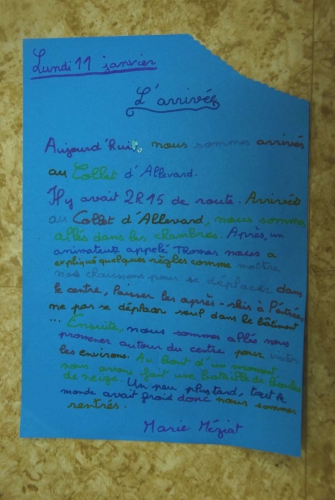 Lundi 11 janvier
L'arrivée
Aujourd'hui, nous sommes arrivés
au Collet d'Allevard.
Il y avait 2R15 de route. Arrivés
au Collet d'Allevard, nous sommes
allés dans les chambres. Après, un
animateur appelé Thomas nous a
expliqué quelques règles comme mettre
nos chaussons pour se déplacer dans
le centre, laisser les après-skis à l'entrée,
ne pas se déplacer seul dans le bâtiment
... Ensuite, nous sommes allés nous
promener autour du centre pour visiter
les environs. Au bout d'un moment,
nous avons fait une bataille de boules
de neige. Un peu plus tard, tout le
monde avait froid donc nous sommes
rentrés.
Marie Méziat